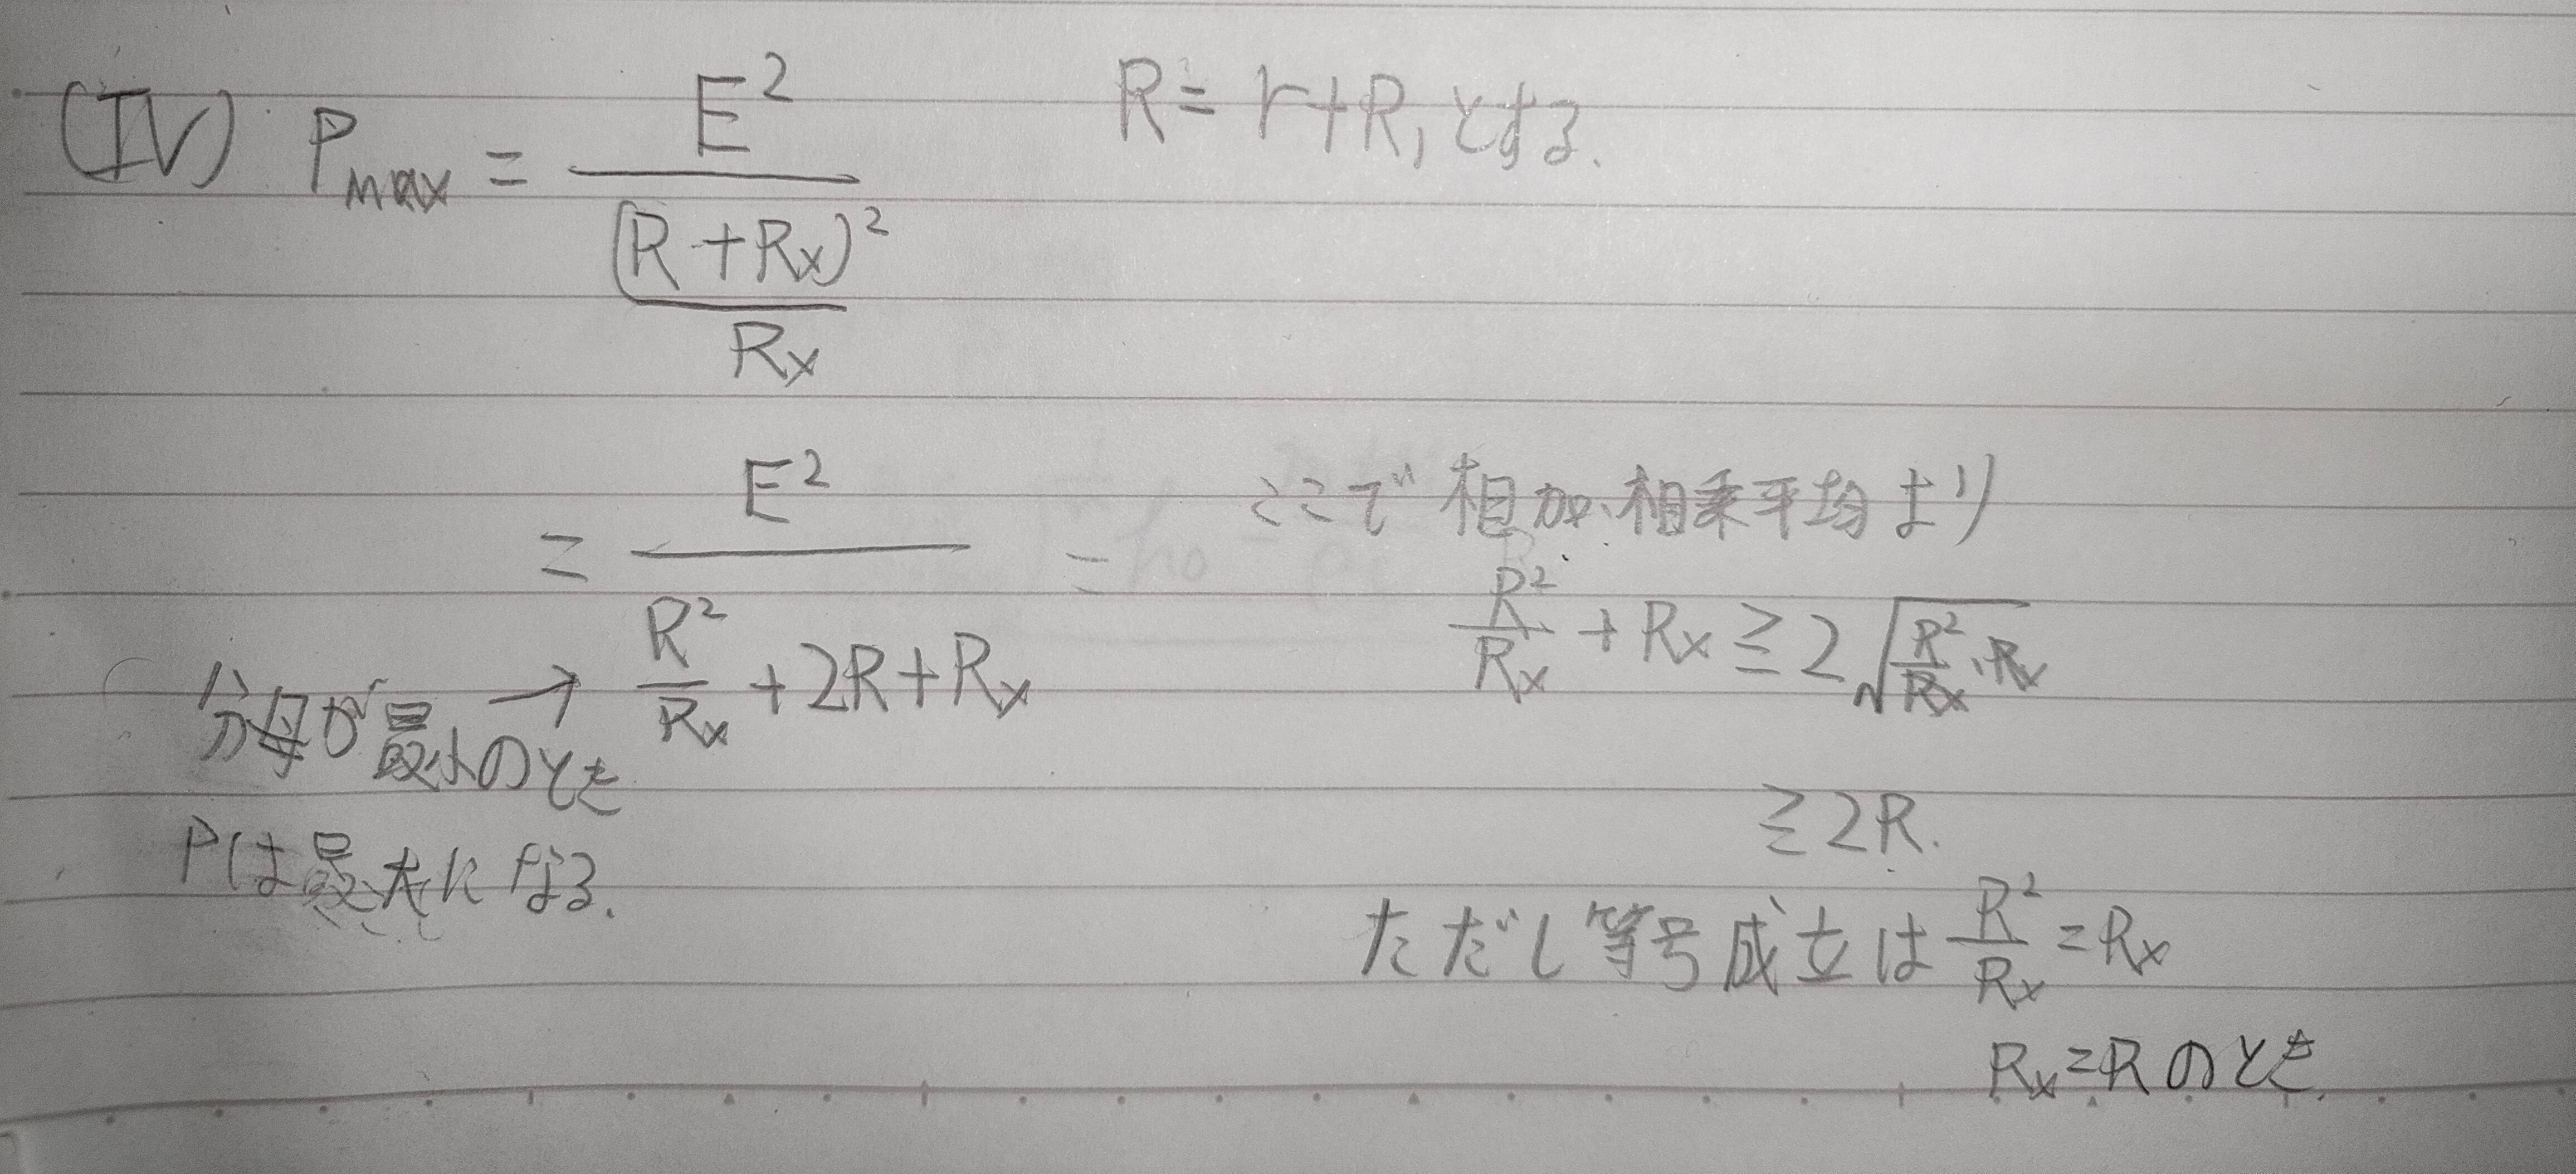 (IV) Pmax = E² / ((R+Rx)² / Rx)
R = r+R₁とする.
= E² / (R²/Rx + 2R + Rx)
分母が最小のとき →
Pは最大になる.
ここで相加、相乗平均より
R²/Rx + Rx ≧ 2√(R²/Rx・Rx)
≧ 2R.
ただし等号成立は R²/Rx = Rx
Rx = R のとき.